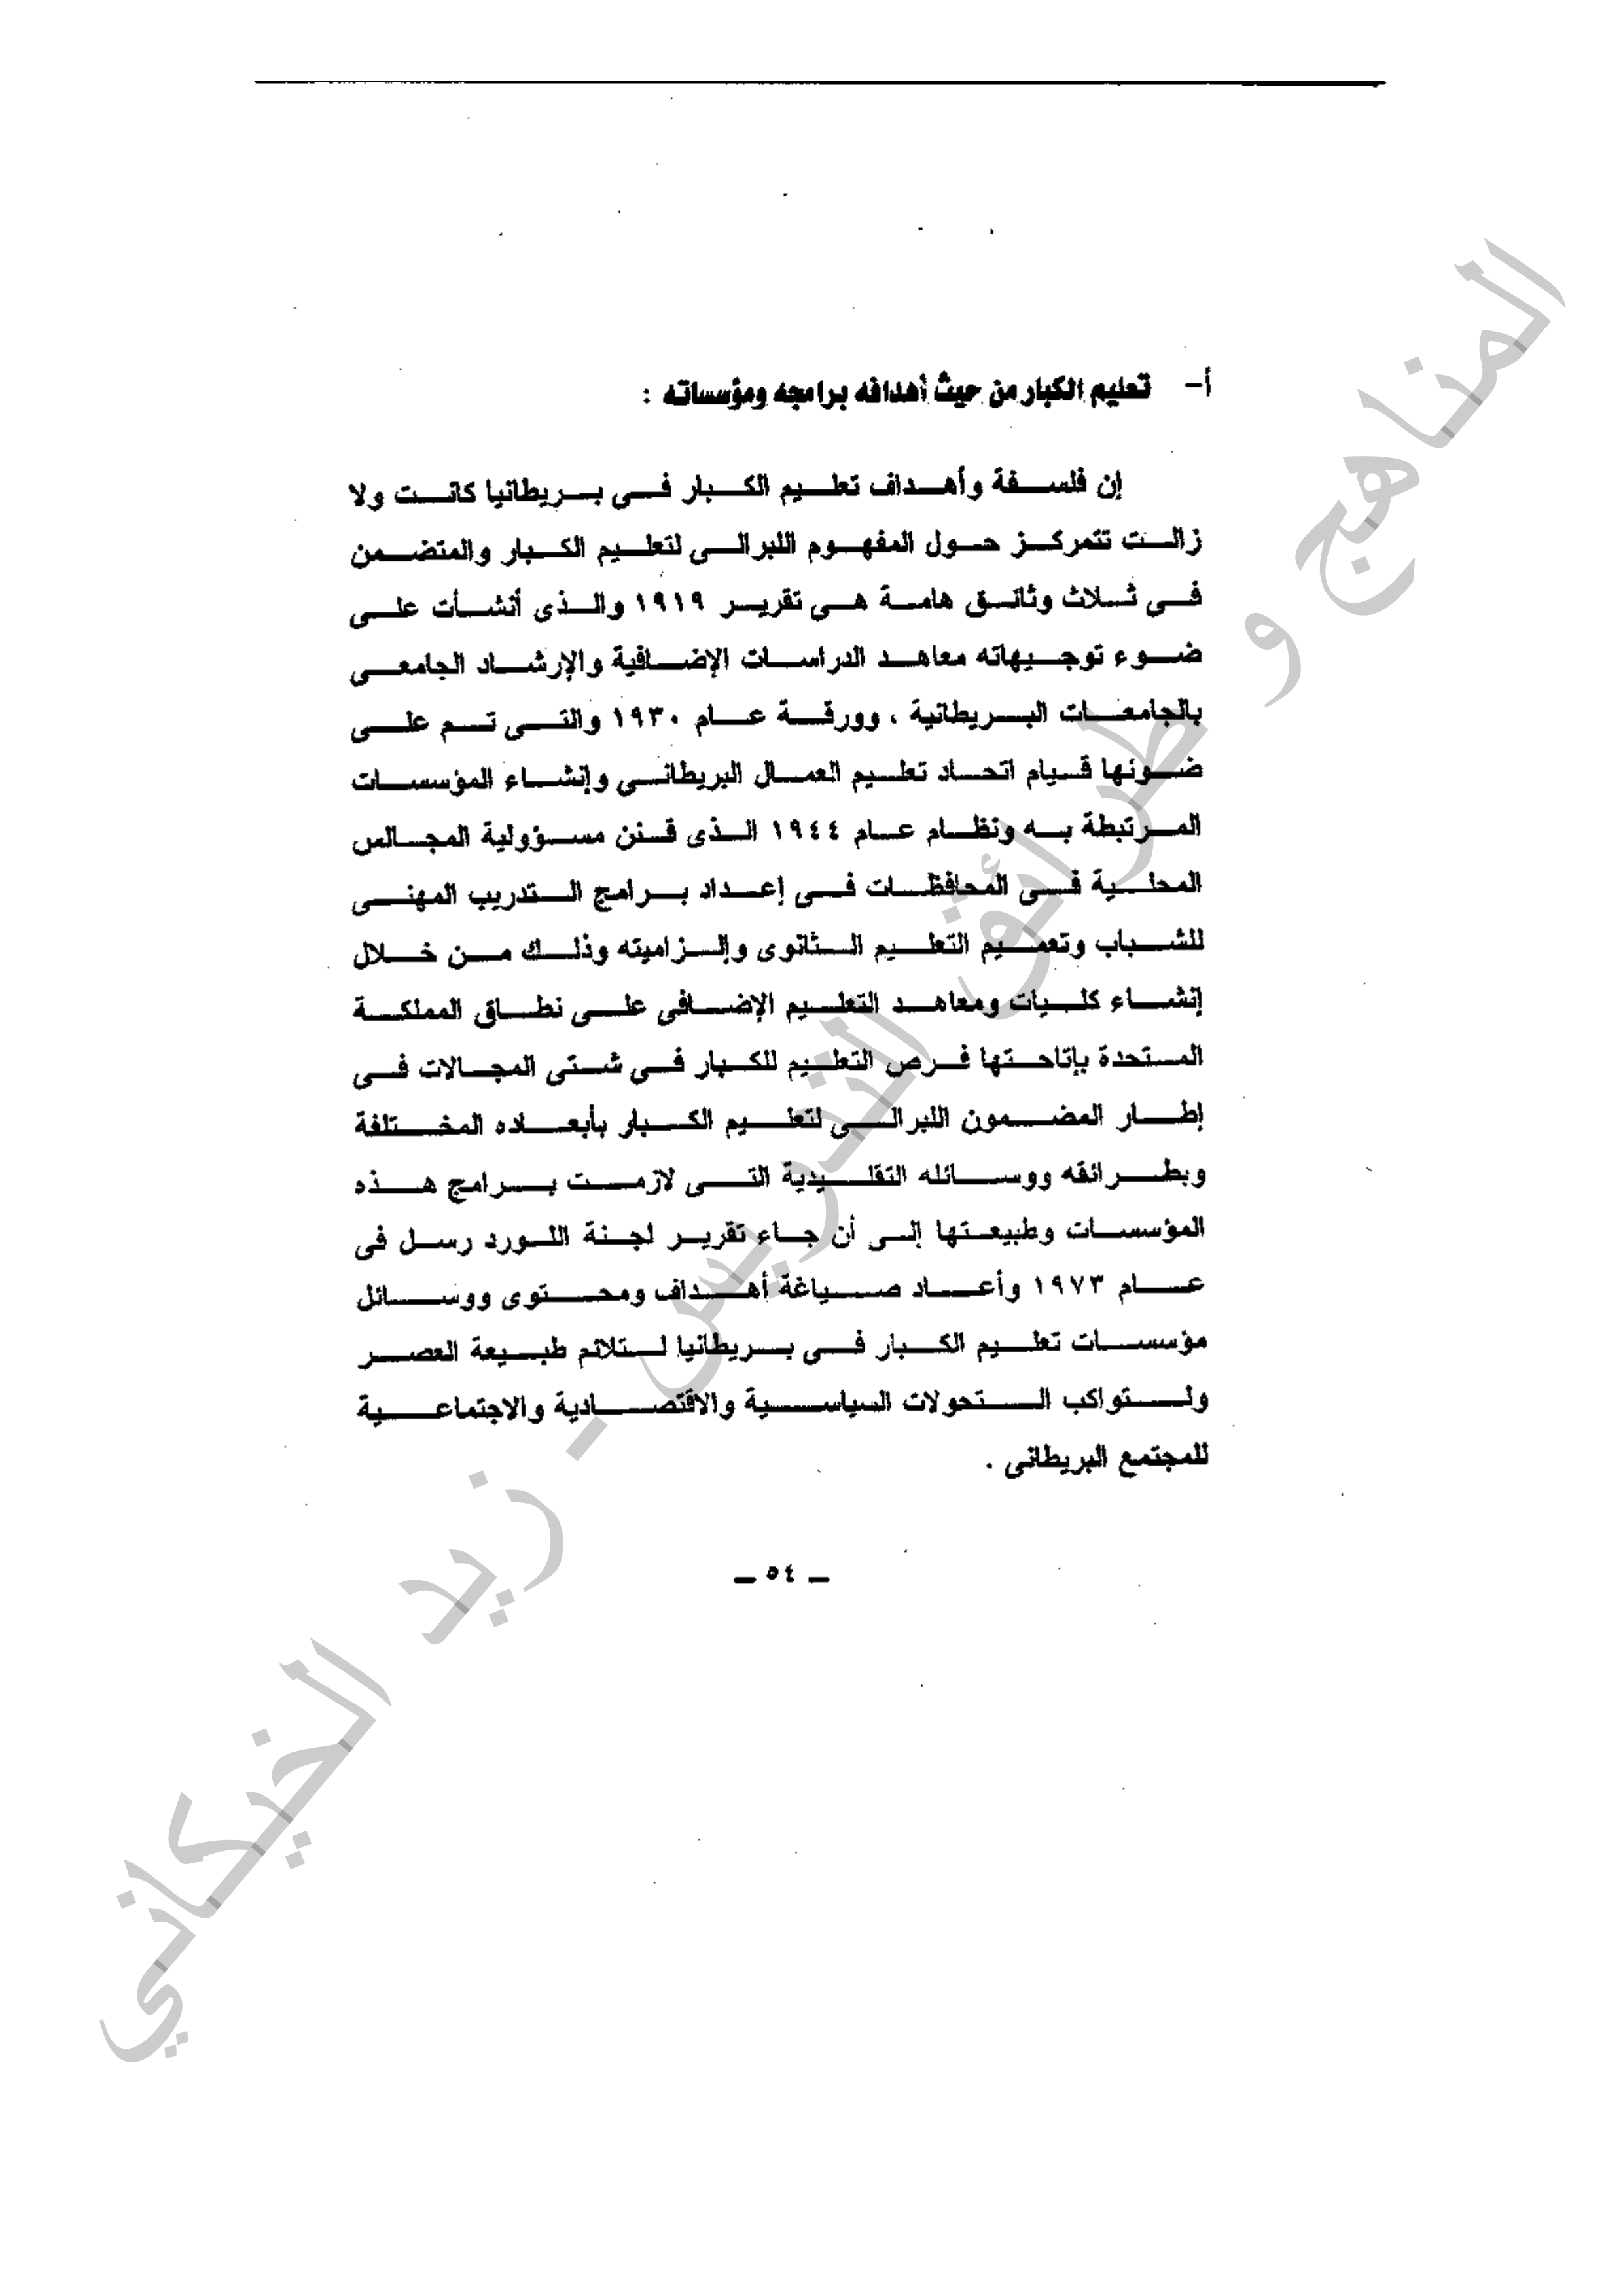 أ- تعليم الكبار من حيث أهدافه برامجه ومؤسساته :
إن فلسفة وأهداف تعليم الكبار فى بريطانيا كانت ولا
زالت تتمركز حول المفهوم الليبرالى لتعليم الكبار والمتضمن
فى ثلاث وثائق هامة هى تقرير ١٩١٩ والذى أنشأت على
ضوء توجيهاته معاهد الدراسات الإضافية والإرشاد الجامعى
بالجامعات البريطانية ، وورقة عام ١٩٣٠ والتى تم على
ضوئها قيام اتحاد تعليم العمال البريطانى وإنشاء المؤسسات
المرتبطة به ونظام عام ١٩٤٤ الذى قنن مسؤولية المجالس
المحلية فى المحافظات فى إعداد برامج التدريب المهنى
للشباب وتعميم التعليم الثانوى وإلزاميته وذلك من خلال
إنشاء كليات ومعاهد التعليم الإضافى على نطاق المملكة
المتحدة بإتاحتها فرص التعليم للكبار فى شتى المجالات فى
إطار المضمون اللبرالى لتعليم الكبار بأبعاده المختلفة
وبطرائقه ووسائله التقليدية التى لازمت برامج هذه
المؤسسات وطبيعتها إلى أن جاء تقرير لجنة اللورد رسل فى
عام ١٩٧٣ وأعاد صياغة أهداف ومحتوى ووسائل
مؤسسات تعليم الكبار فى بريطانيا لتلائم طبيعة العصر
ولتواكب التحولات السياسية والاقتصادية والاجتماعية
للمجتمع البريطانى .
ـ ٥٤ ـ
المناهج و طرائق التدريس - زيد الخيكاني